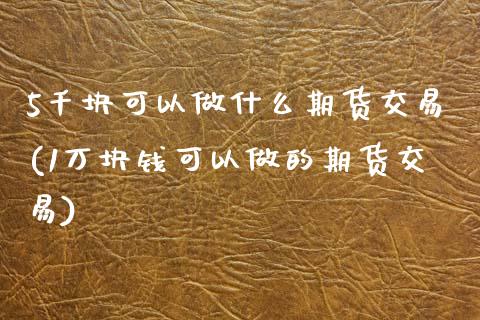 5千块可以做什么期货交易
(1万块钱可以做的期货交
易)